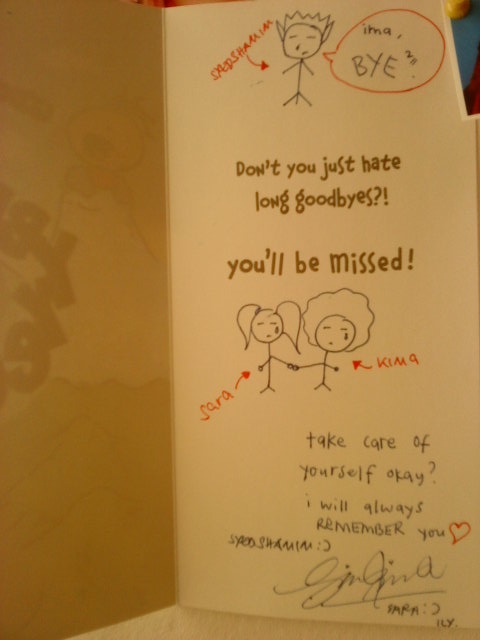 ima,
BYE 2!!
SYEDSHAMIM
Don't you just hate
long goodbyes?!
you'll be missed!
Sara
KIMA
take care of
yourself okay?
i will always
REMEMBER you
SYEDSHAMIM :)
SARA :)
ILY.